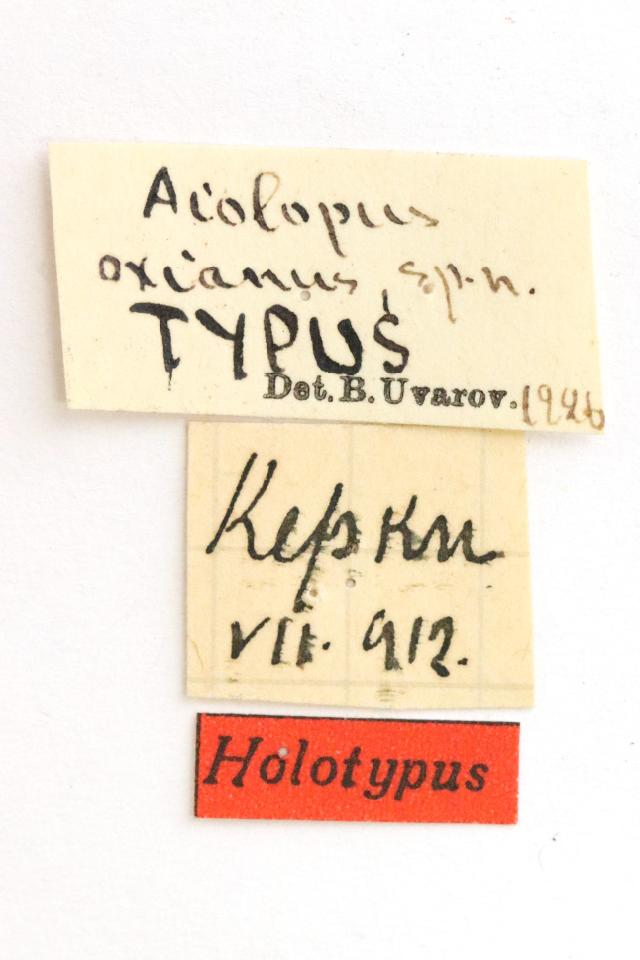 Aiolopus
oxianus, sp. n.
TYPUS
Det. B. Uvarov. 1926
Керки
VII. 912.
Holotypus